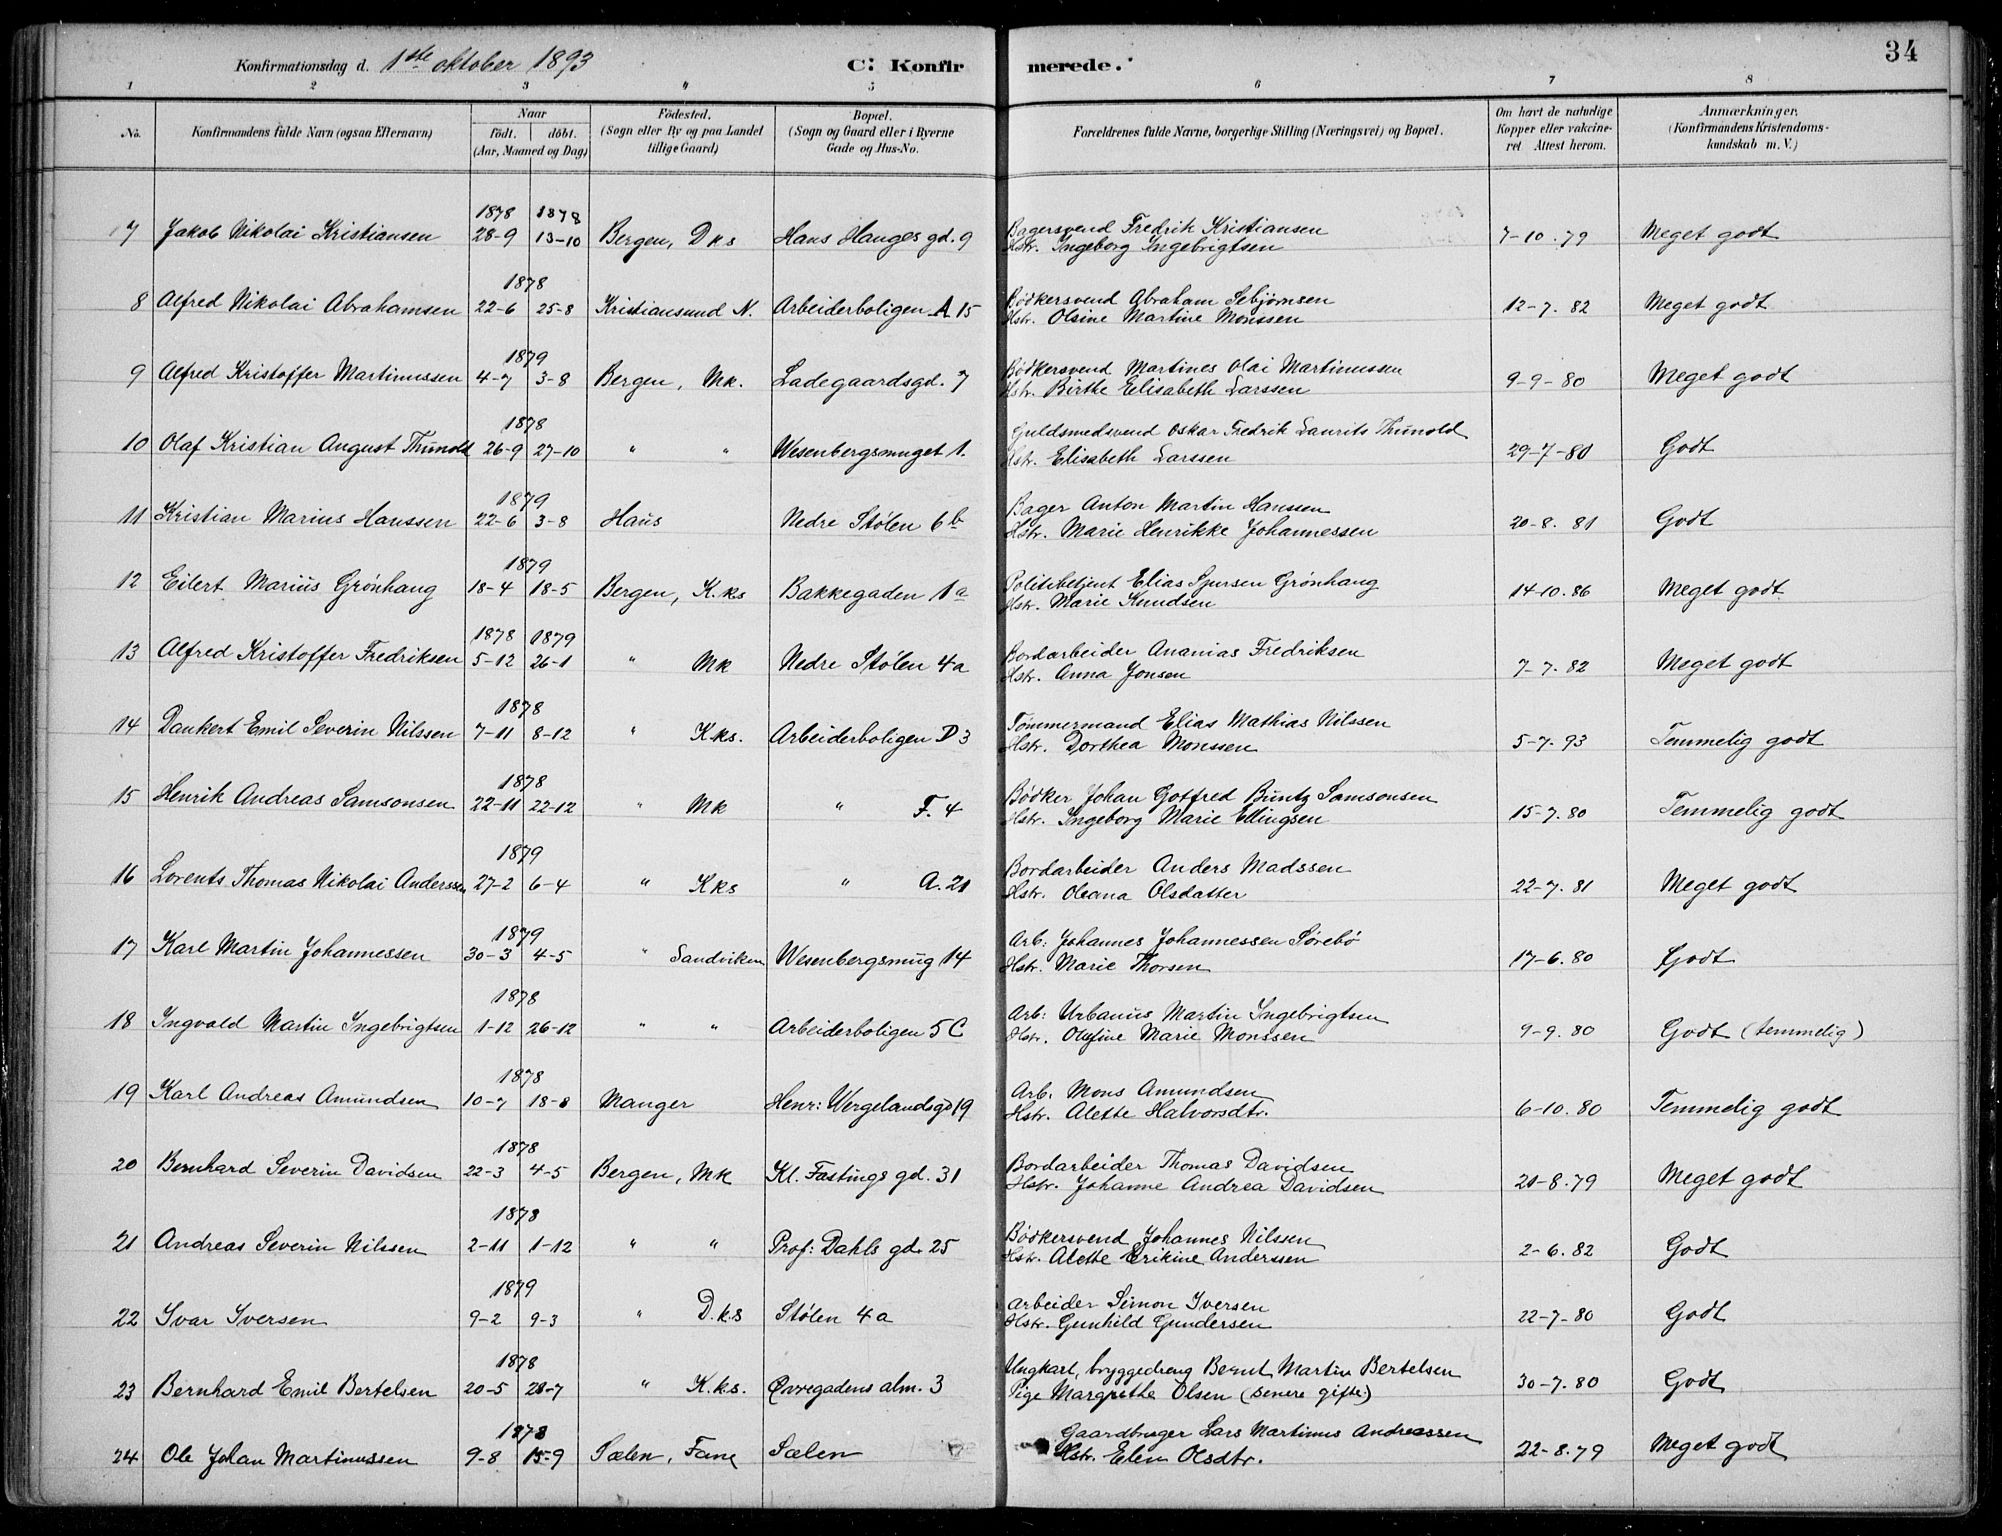 34
Konfirmationsdag d. 1ste oktober 1893 C: Konfir merede.
1 2 3 " 5 6 7 8
No. Konfirmandens fulde Navn (ogsaa Efternavn) Naar født. døbt. (Aar, Maaned og Dag) Fødested. (Sogn eller By og paa Landet tillige Gaard) Bopæl. (Sogn og Gaard eller i Byerne Gade og Hus-No. Forældrenes fulde Navne, borgerlige Stilling (Næringsvei) og Bopæl. Om havt de naturlige Kopper eller vakcineret Attest herom. Anmærkninger. (Konfirmandens Kristendomskundskab m. V.)
1878 1878
7 Jakob Nikolai Kristiansen 28-9 13-10 Bergen, Dks Hans Hauges gd. 9 Bagersvend Fredrik Kristiansen 7-10.79 Meget godt
Hstr. Ingeborg Ingebrigtsen
1878
8 Alfred Nikolai Abrahamsen 22-6 25-8 Kristiansund N. Arbeiderboligen A 15 Bødkersvend Abraham Sebjørnsen 12-7.82 Meget godt
Hstr. Olsine Martine Monssen
1879
9 Alfred Kristoffer Martinussen 4-7 3-8 Bergen, Mk. Ladegaardsgd. 7 Bødkersvend Martines Olai Martinussen 9-9-80 Meget godt
Hstr. Birthe Elisabeth Larssen
1878
10 Olaf Kristian August Thunold 26-9 27-10 " " Wesenbergsmuget 1. Guldsmedsvend Oskar Fredrik Laurits Thunold 29-7-80 Godt
Hstr. Elisabeth Larssen
1879
11 Kristian Marius Hanssen 22-6 3-8 Haus Nedre Stølen 6b Bager Anton Martin Hanssen 20-8.81 Godt
Hstr. Marie Henrikke Johannessen
1879
12 Eilert Marius Grönhaug 18-4 18-5 Bergen, K.ks Bakkegaden 1a Politibetjent Elias Sjursen Grönhaug 14-10.86 Meget godt
Hstr. Marie Knudsen
1878 1879
13 Alfred Kristoffer Fredriksen 5-12 26-1 " Mk Nedre Stølen 4a Bordarbeider Ananias Fredriksen 7-7.82 Meget godt
Hstr. Anna Jonsen
1878
14 Dankert Emil Severin Nilssen 7-11 8-12 " K.ks. Arbeiderboligen D 3 Tømmermand Elias Mathias Nilssen 5-7.93 Temmelig godt
Hstr. Dorthea Monssen
1878
15 Henrik Andreas Samsonsen 22-11 22-12 " Mk " F. 4 Bødker Johan Gotfred Buntz Samsonsen 15-7.80 Temmelig godt
Hstr. Ingeborg Marie Ellingsen
1879
16 Lorents Thomas Nikolai Anderssen 27-2 6-4 " Kks " A. 21 Bordarbeider Anders Madssen 22-7.81 Meget godt
Hstr. Oleana Olsdatter
1879
17 Karl Martin Johannessen 30-3 4-5 " Sandviken Wesenbergsmug 14 Arb: Johannes Johannessen Sørebø 17-6.80 Godt
Hstr. Marie Thorsen
1878
18 Ingvald Martin Ingebrigtsen 1-12 26-12 " " Arbeiderboligen 5 C Arb: Urbanus Martin Ingebrigtsen 9-9.80 Godt (temmelig)
Hstr. Olufine Marie Monssen
1878
19 Karl Andreas Amundsen 10-7 18-8 Manger Henr: Wergelandsgd 19 Arb. Mons Amundsen 6-10.80 Temmelig godt
Hstr. Alette Halvorsdtr.
1878
20 Bernhard Severin Davidsen 22-3 4-5 Bergen, Mk Kl. Fastings gd. 31 Bordarbeider Thomas Davidsen 21-8.79 Meget godt
Hstr. Johanne Andrea Davidsen
1878
21 Andreas Severin Nilssen 2-11 1-12 " " Prof: Dahls gd. 25 Bødkersvend Johannes Nilssen 2-6.82 Godt
Hstr. Alette Erikine Anderssen
1879
22 Ivar Iversen 9-2 9-3 " D.k.s Stølen 4a Arbeider Simon Iversen 22-7-80 Godt
Hstr. Gunhild Gundersen
1878
23 Bernhard Emil Bertelsen 20-5 28-7 " K.ks. Øvregadens alm. 3 Ungkarl, bryggedreng Bernt Martin Bertelsen 30-7.80 Godt
Pige Margrethe Olsen (senere gifte)
1878
24 Ole Johan Martinussen 9-8 15-9 Sælen, Fane Sælen Gaardbruger Lars Martinus Andreassen 22-8.79 Meget godt
Hstr. Elen Olsdtr.